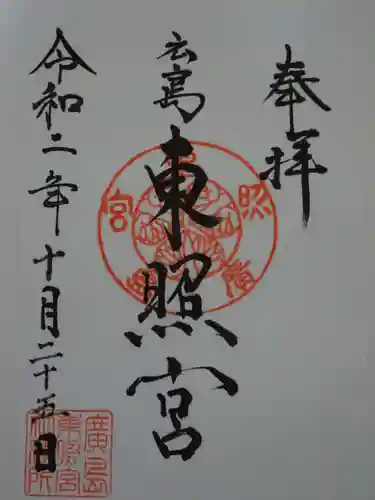 奉拝
広島
東照宮
令和二年十月二十五日
廣島
東照宮